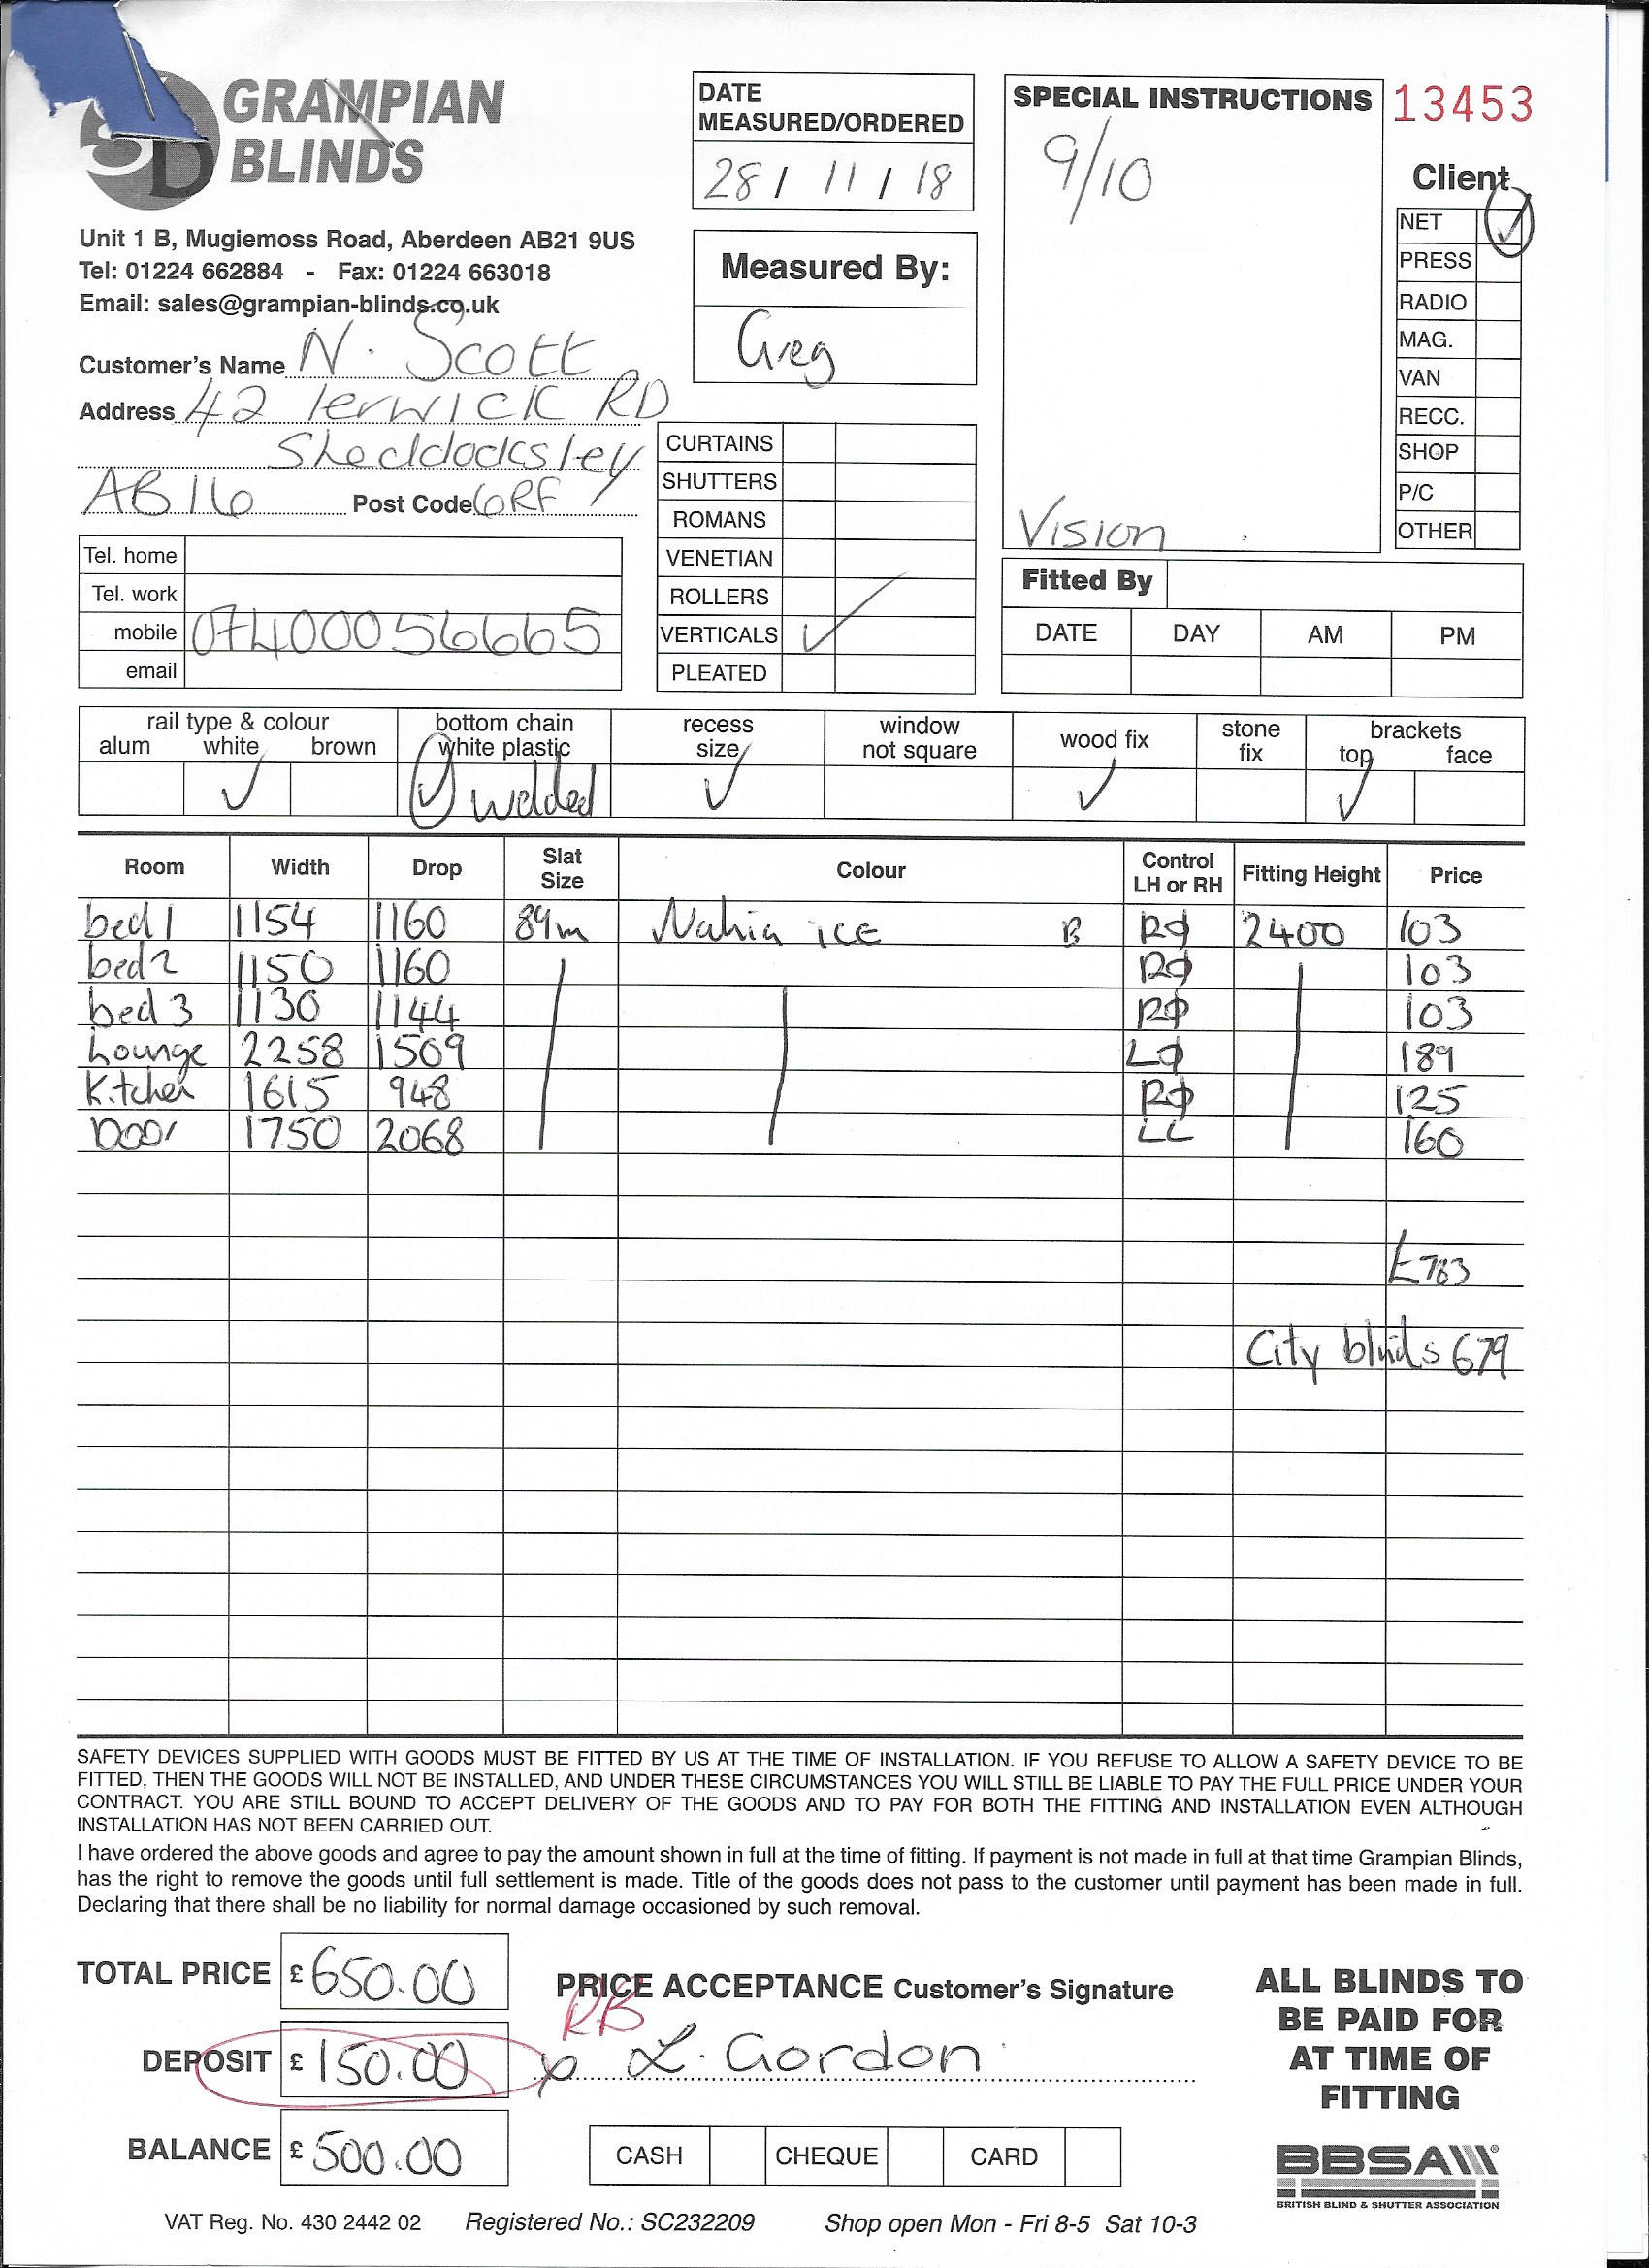 GRAMPIAN
BLINDS
Unit 1 B, Mugiemoss Road, Aberdeen AB21 9US
Tel: 01224 662884 - Fax: 01224 663018
Email: sales@grampian-blinds.co.uk
Customer's Name N. Scott
Address 42 lerwick RD
Sheddocksley
AB16 Post Code 6RF
Tel. home
Tel. work
mobile 07400056665
email
DATE
MEASURED/ORDERED
28 / 11 / 18
Measured By:
Greg
CURTAINS
SHUTTERS
ROMANS
VENETIAN
ROLLERS
VERTICALS ✓
PLEATED
SPECIAL INSTRUCTIONS
9/10
Vision
13453
Client
NET ✓
PRESS
RADIO
MAG.
VAN
RECC.
SHOP
P/C
OTHER
Fitted By
DATE DAY AM PM
rail type & colour bottom chain recess window wood fix stone brackets
alum white brown white plastic size not square fix top face
✓ ✓ welded ✓ ✓ ✓
Room Width Drop Slat Size Colour Control LH or RH Fitting Height Price
bed 1 1154 1160 89m Nahia ice B 2400 103
bed 2 1150 1160 103
bed 3 1130 1144 103
Lounge 2258 1509 189
Kitchen 1615 948 125
Door 1750 2068 LL 160
£783
City blinds 679
SAFETY DEVICES SUPPLIED WITH GOODS MUST BE FITTED BY US AT THE TIME OF INSTALLATION. IF YOU REFUSE TO ALLOW A SAFETY DEVICE TO BE
FITTED, THEN THE GOODS WILL NOT BE INSTALLED, AND UNDER THESE CIRCUMSTANCES YOU WILL STILL BE LIABLE TO PAY THE FULL PRICE UNDER YOUR
CONTRACT. YOU ARE STILL BOUND TO ACCEPT DELIVERY OF THE GOODS AND TO PAY FOR BOTH THE FITTING AND INSTALLATION EVEN ALTHOUGH
INSTALLATION HAS NOT BEEN CARRIED OUT.
I have ordered the above goods and agree to pay the amount shown in full at the time of fitting. If payment is not made in full at that time Grampian Blinds,
has the right to remove the goods until full settlement is made. Title of the goods does not pass to the customer until payment has been made in full.
Declaring that there shall be no liability for normal damage occasioned by such removal.
TOTAL PRICE £ 650.00
DEPOSIT £ 150.00
BALANCE £ 500.00
PRICE ACCEPTANCE Customer's Signature
RB
x L. Gordon
CASH CHEQUE CARD
ALL BLINDS TO
BE PAID FOR
AT TIME OF
FITTING
BBSA
BRITISH BLIND & SHUTTER ASSOCIATION
VAT Reg. No. 430 2442 02 Registered No.: SC232209 Shop open Mon - Fri 8-5 Sat 10-3